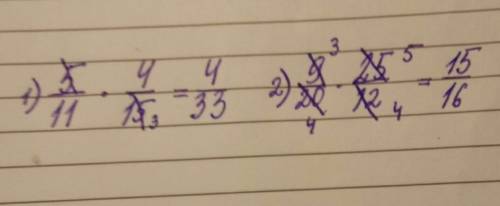 1) 5/11 · 4/15 3 = 4/33 2) 9 3/20 4 · 25 5/12 4 = 15/16